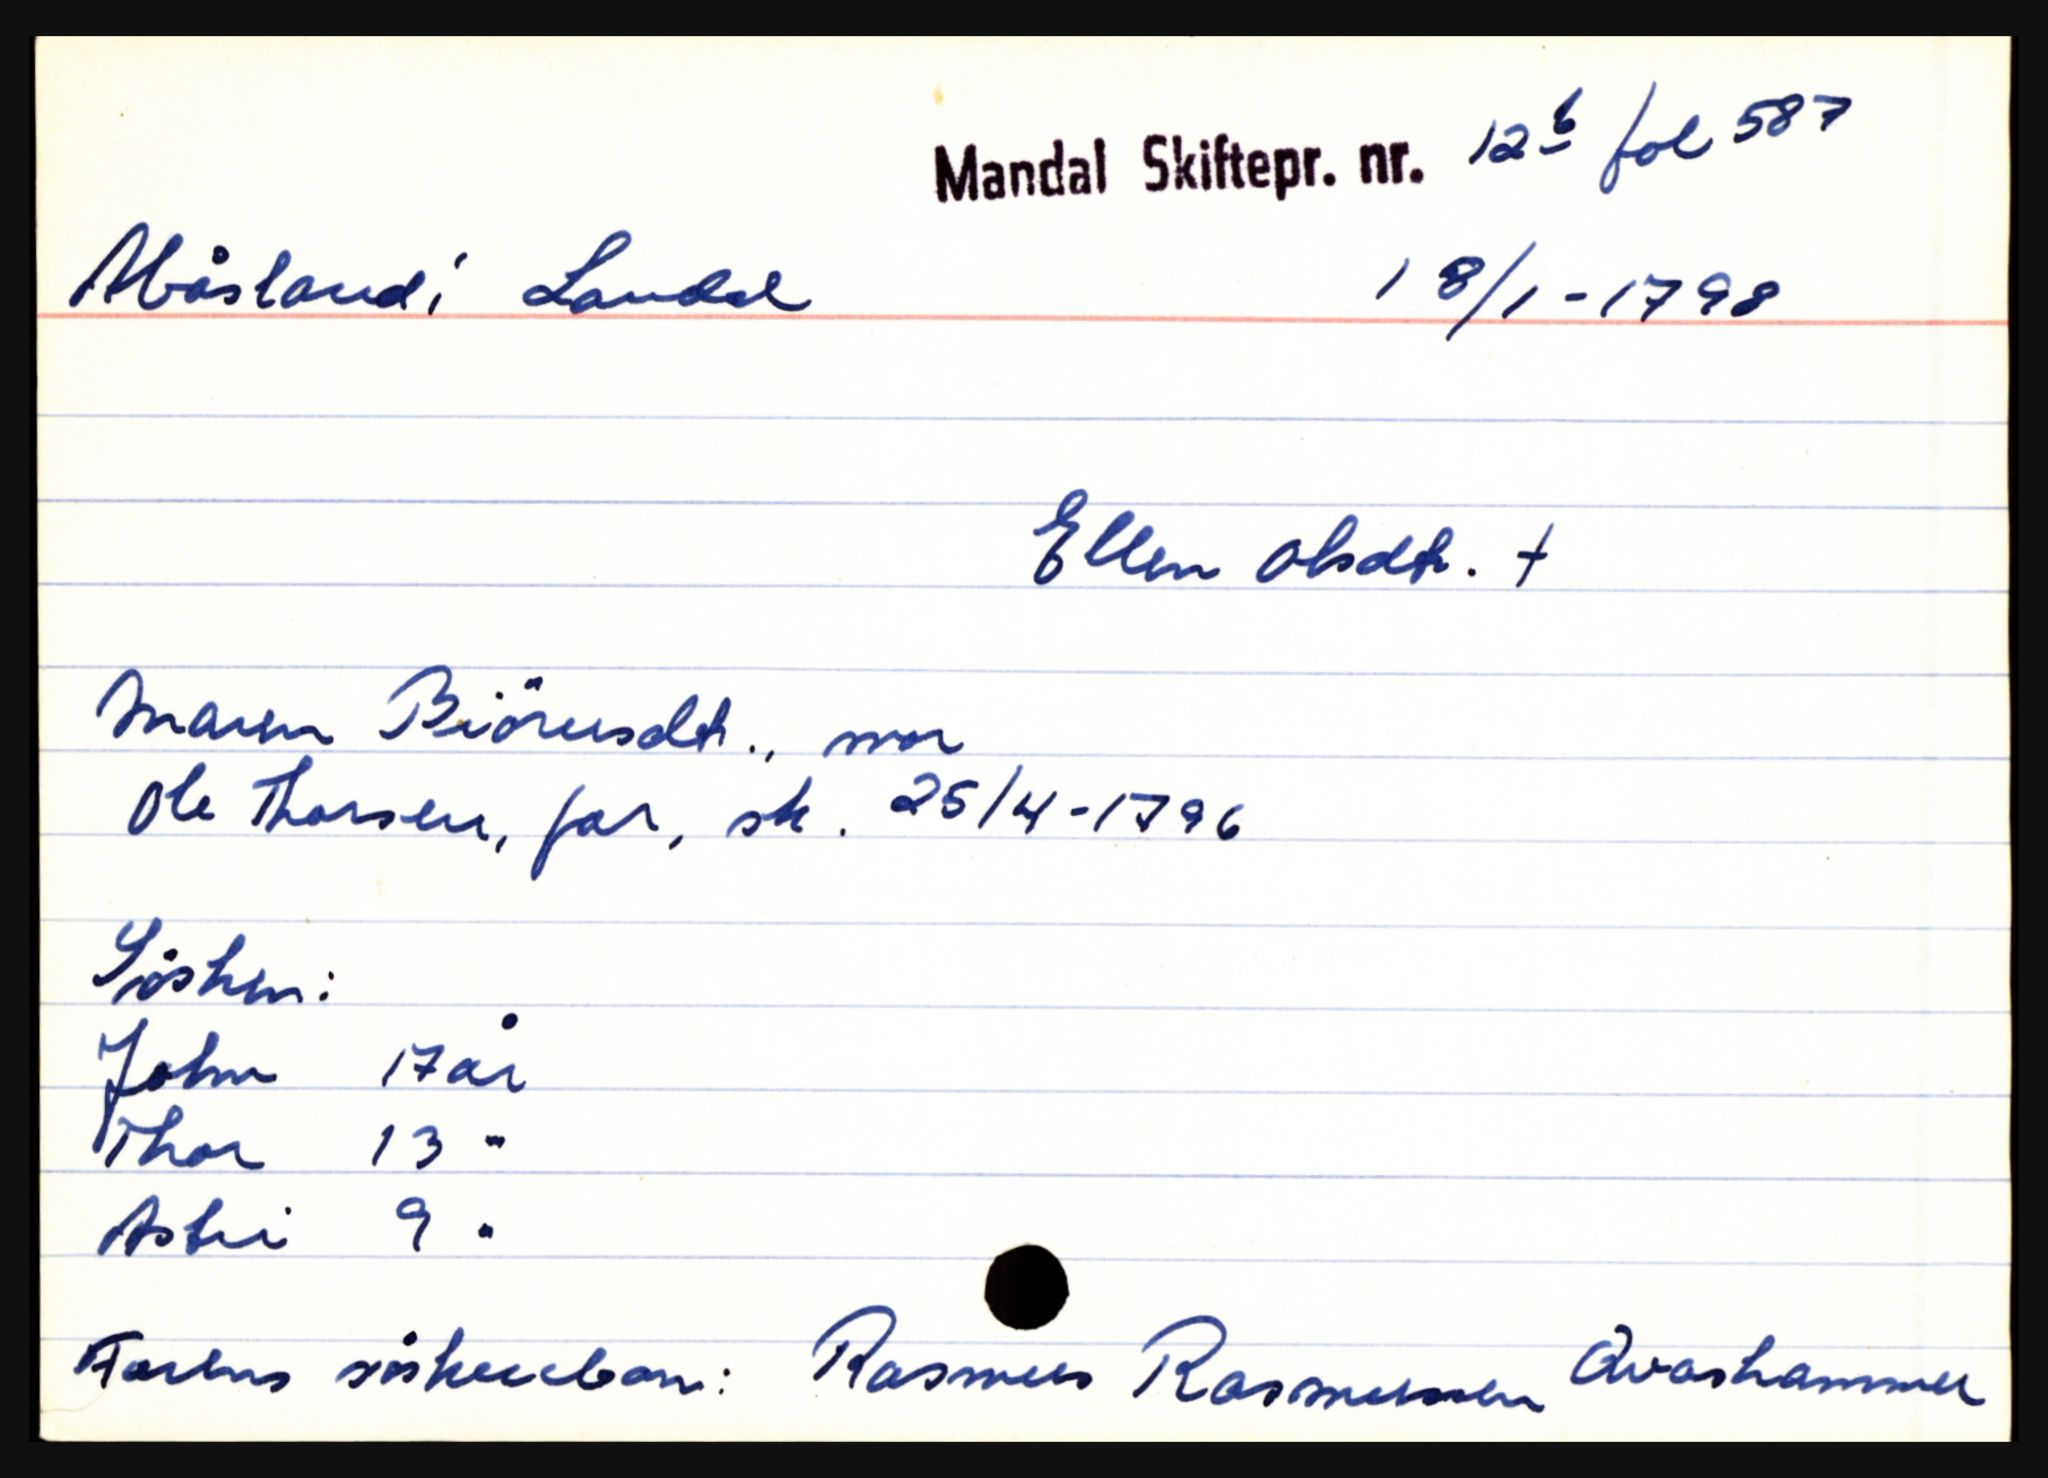 Mandal Skiftepr. nr. 12b fol 587
Åvåsland i Laudal 18/1-1798
Ellen Olsdtr. †
Maren Biörnsdtr., mor
Ole Thorsen, far, sk. 25/4-1796
Søsken:
John 17 år
Thor 13 "
Astri 9 "
Farens søskenbarn: Rasmus Rasmussen Qvashammer